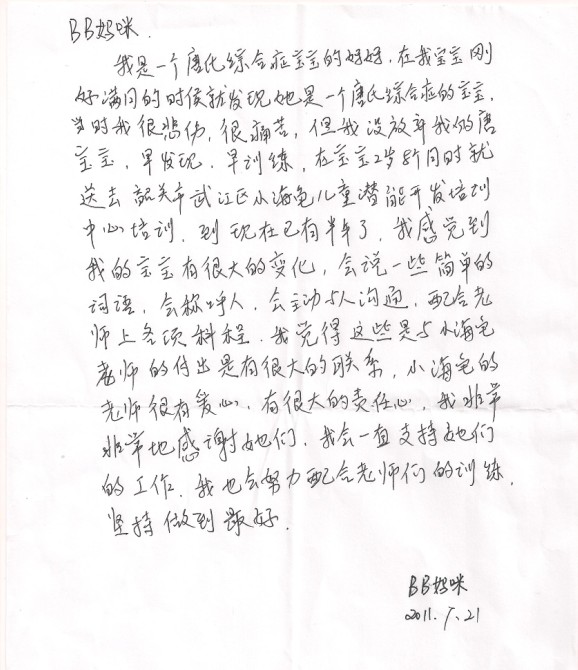 BB妈咪.
我是一个唐氏综合症宝宝的妈妈.在我宝宝刚
好满月的时侯就发现她是一个唐氏综合症的宝宝,
当时我很悲伤,很痛苦,但我没放弃我的唐
宝宝,早发现.早训练,在宝宝2岁8个月时就
送去韶关市武江区小海龟儿童潜能开发培训
中心培训,到现在已有半年了,我感觉到
我的宝宝有很大的变化,会说一些简单的
词语,会称呼人,会主动与人沟通,配合老
师上各项科程.我觉得这些是与小海龟
老师的付出是有很大的联系,小海龟的
老师很有爱心,有很大的责任心,我非常
非常地感谢她们,我会一直支持她们
的工作.我也会努力配合老师们的训练,
坚持做到最好.
BB妈咪
2011. .21